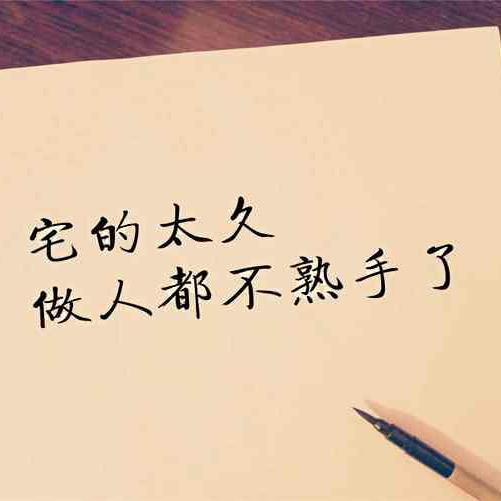 宅的太久
做人都不熟手了